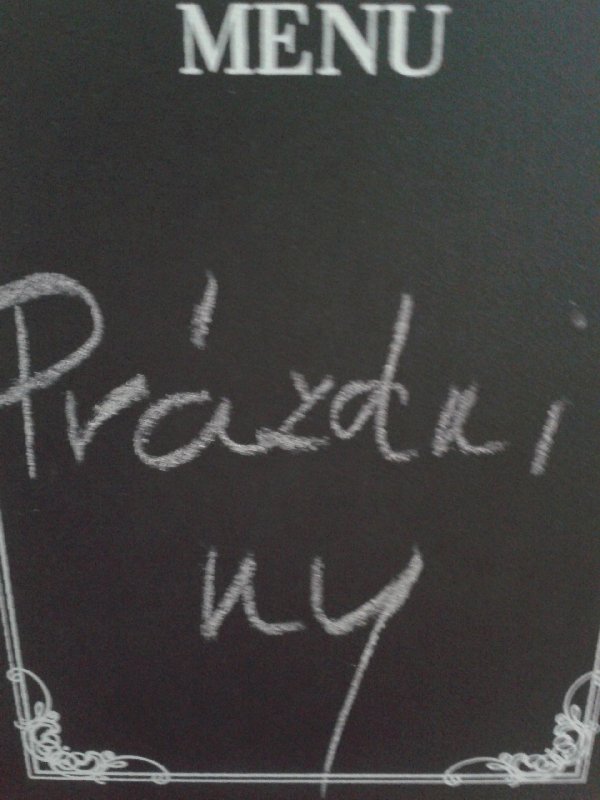 MENU
Prázdni
ny